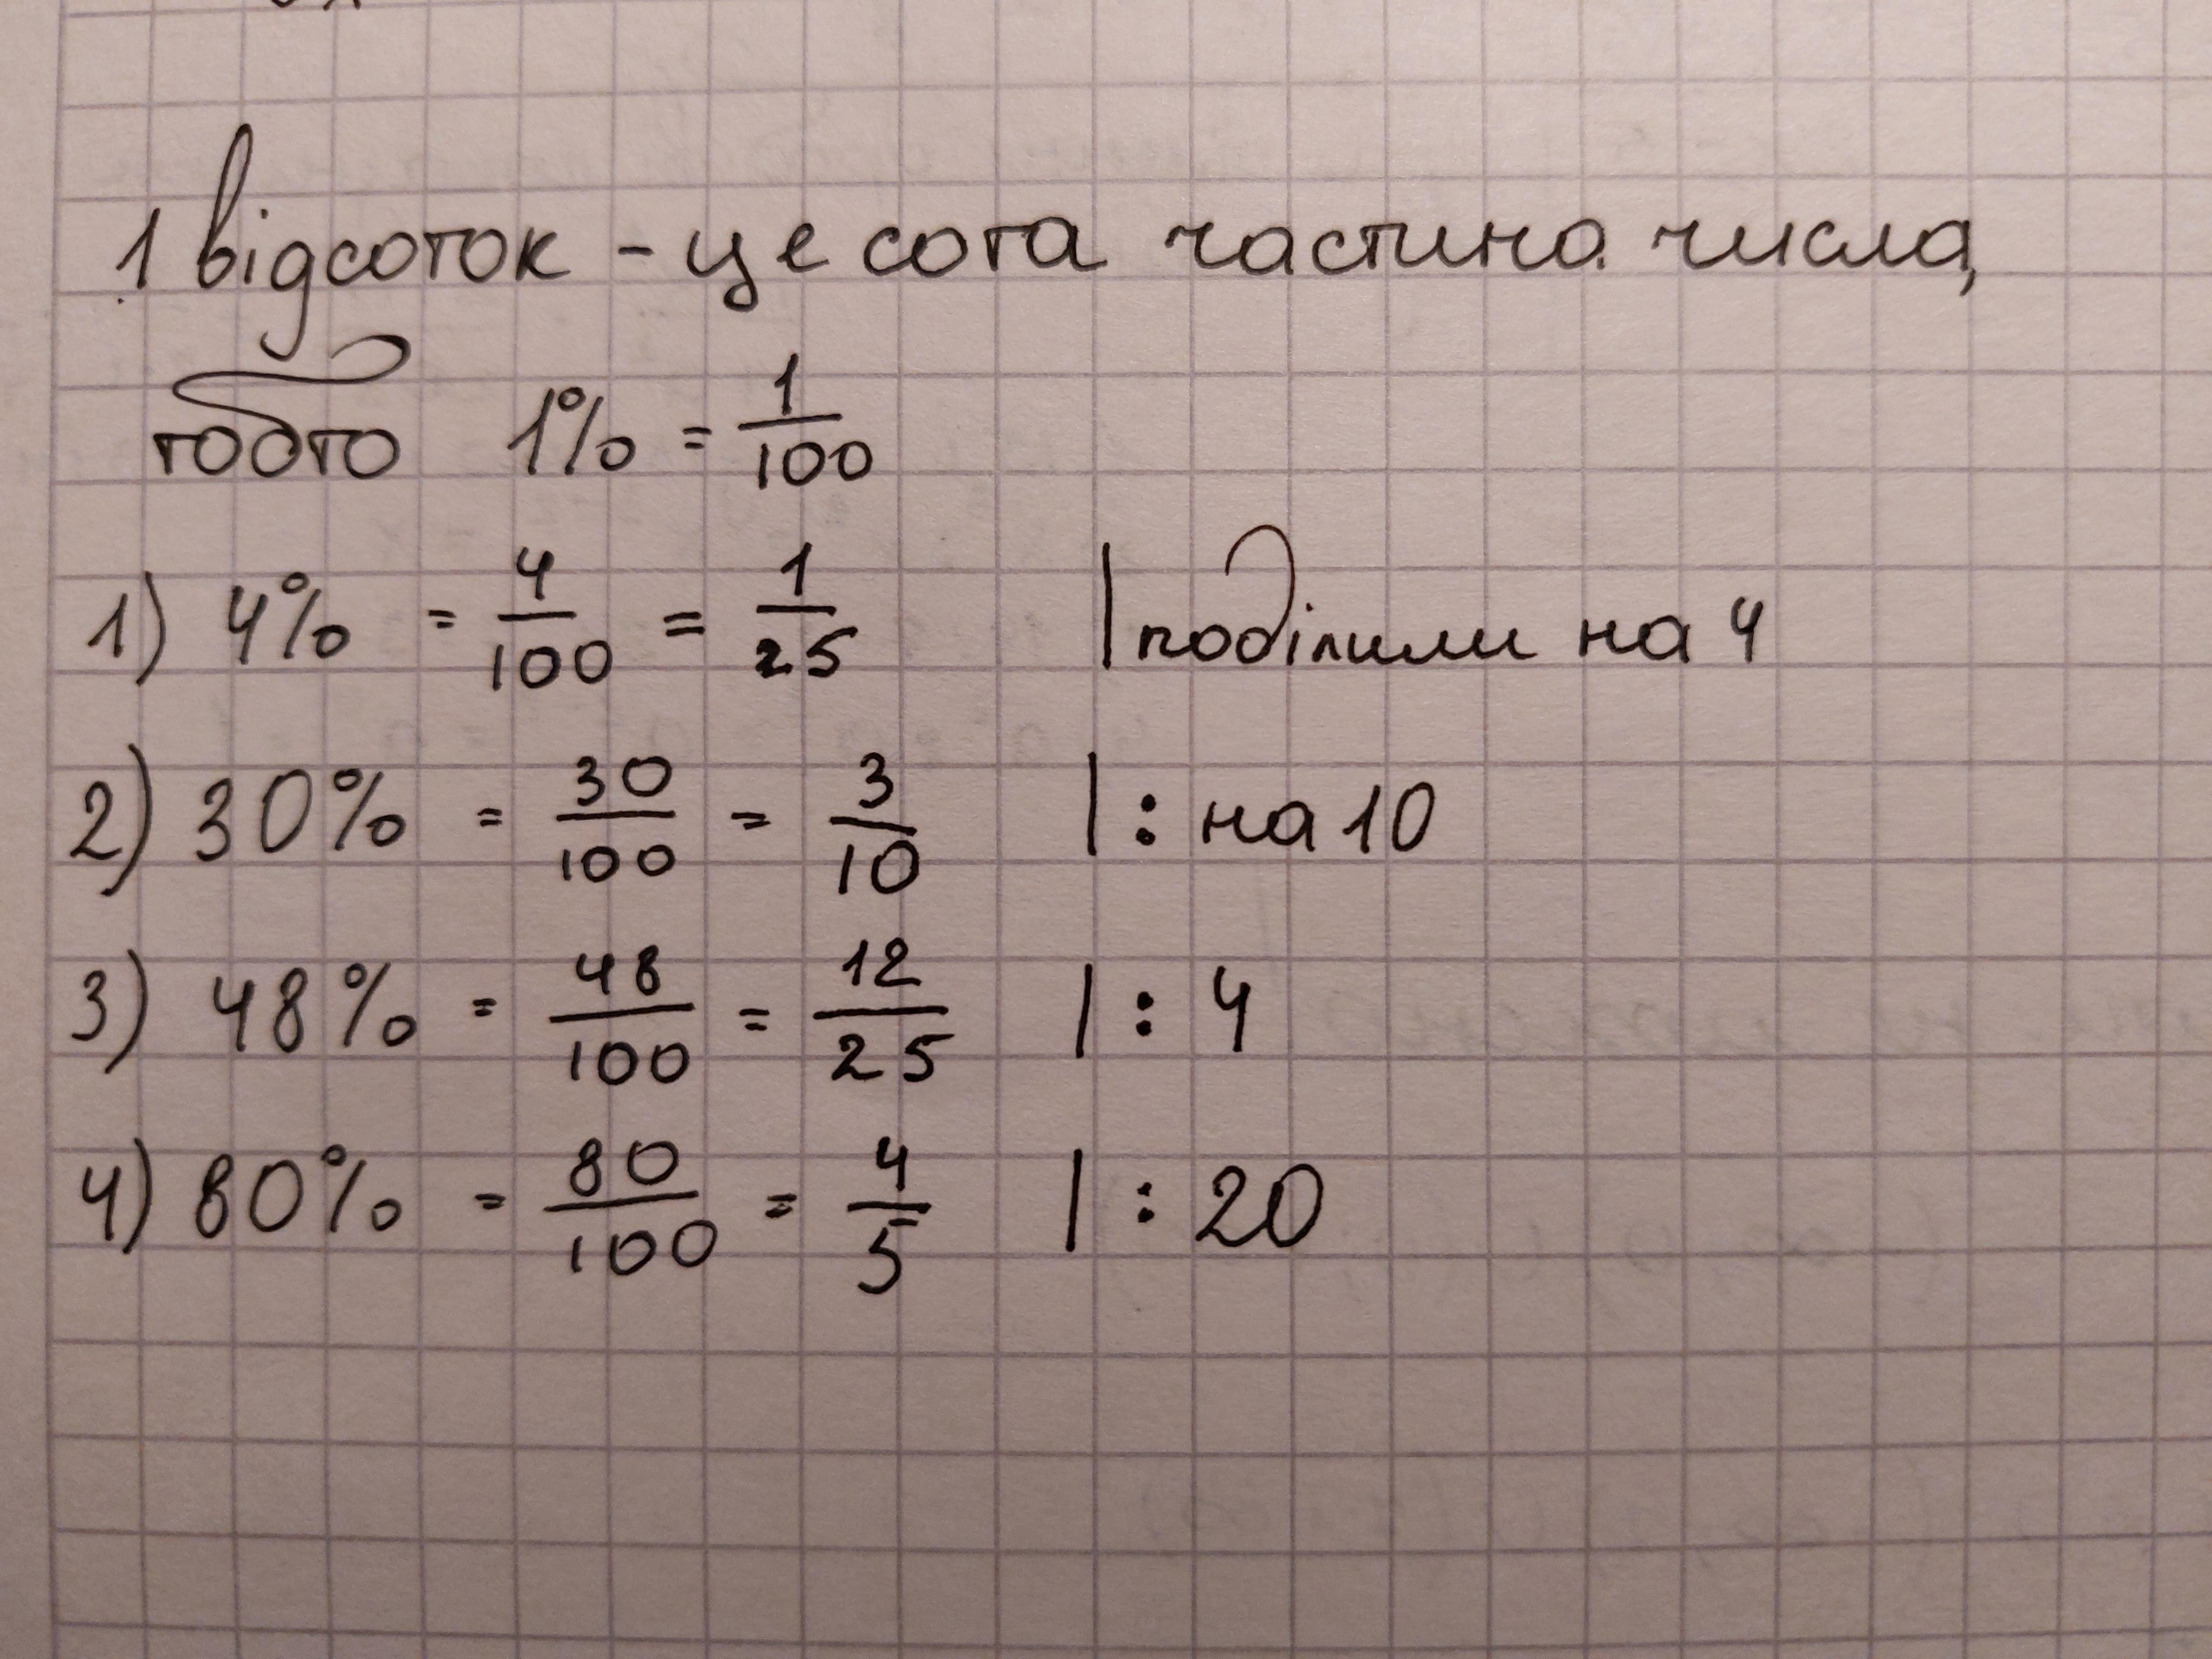 1 відсоток - це сота частина числа,
тобто 1% = 1/100
1) 4% = 4/100 = 1/25 | поділили на 4
2) 30% = 30/100 = 3/10 | : на 10
3) 48% = 48/100 = 12/25 | : 4
4) 80% = 80/100 = 4/5 | : 20